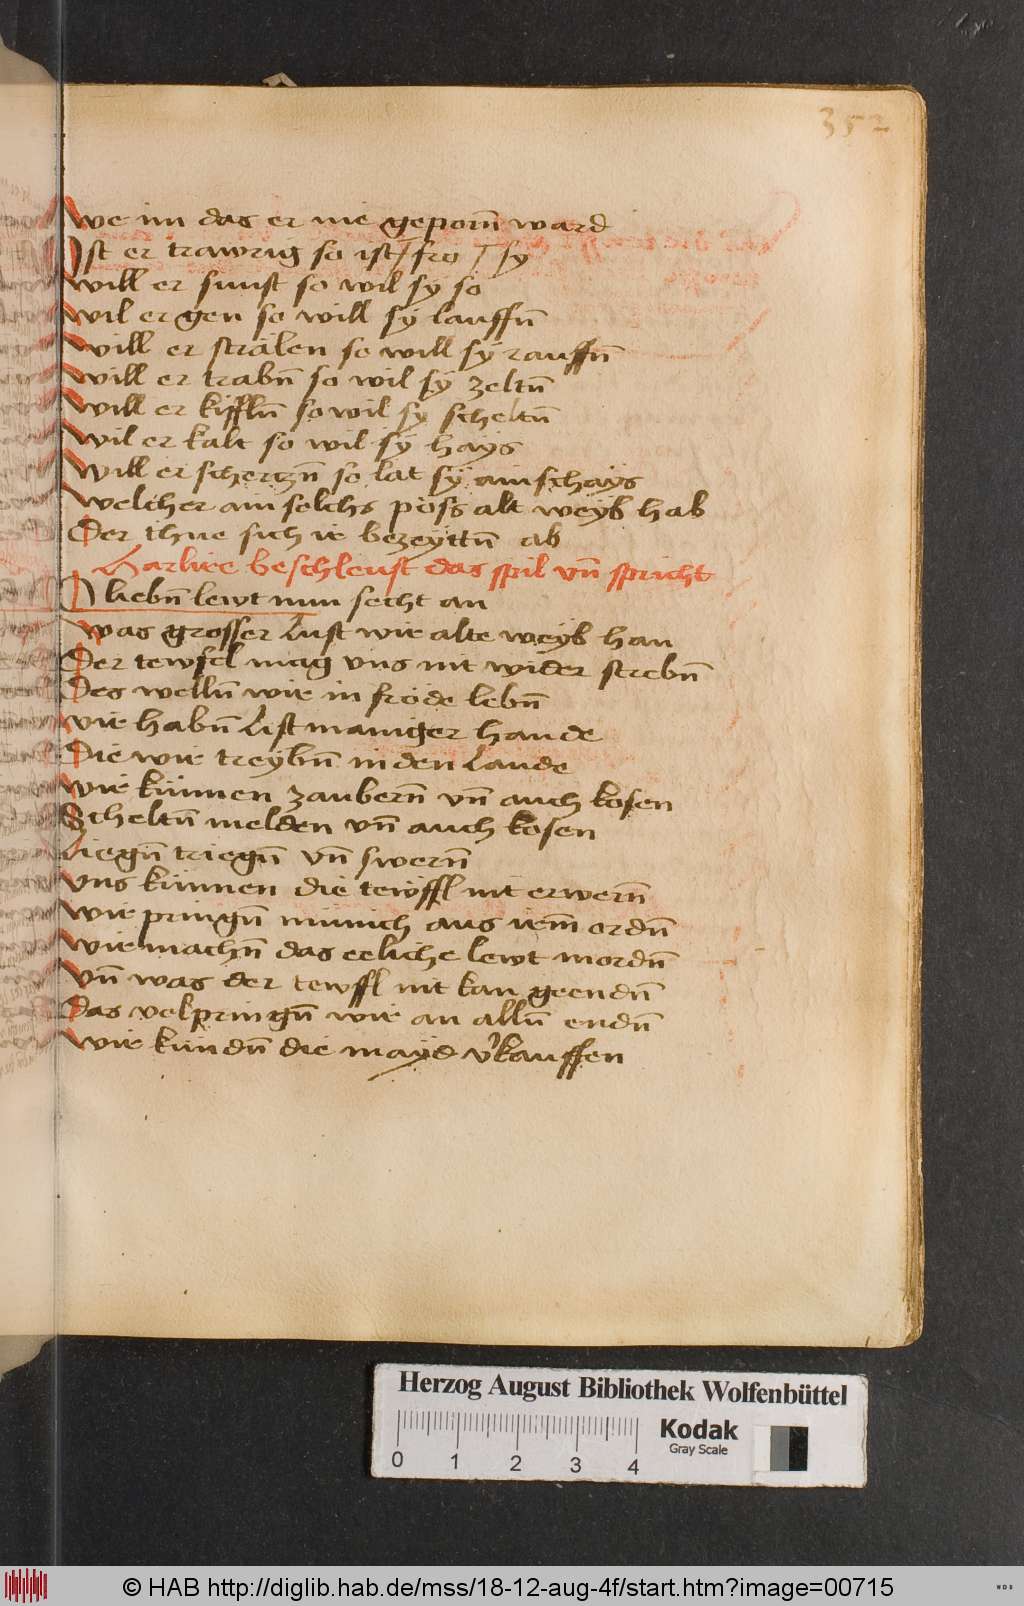 352
we im das er nie geporn̄ ward
Ist er trawrig so ist / fro / sy
will er sunst so wil sy so
wil er gen so will sÿ lauffn̄
will er strälen so will sÿ rauffn̄
will er trabn̄ so wil sÿ zeltn̄
will er kiffln̄ so wil sy scheltn̄
wil er kalt so wil sÿ hays
will er scherczn̄ so lat sÿ ain schaÿs
welcher ain solchs pöss alt weyb hab
Der thue sich ir bezeyttn̄ ab
Harlire beschleust das spil vn̄ spricht
O liebn̄ lewt nun secht an
was grosser Lust wir alte weyb han
Der tewfel mag vns nit wider strebn̄
Des welln̄ wir in fröde lebn̄
wir habn̄ List maniger hande
Die wir treybn̄ in den Lande
wir künnen zaubern̄ vn̄ auch losen
Scheltn̄ melden vn̄ auch kosen
Liegn̄ triegn̄ vn̄ swern̄
vns künnen die tewffl nit erwern̄
wir pringn̄ münich aus irem̄ ordn̄
wir machn̄ das eeliche lewt mordn̄
vn̄ was der tewffl nit kan geendn̄
das volpringn̄ wir an alln̄ endn̄
wir kündn̄ die mayd v̓kauffen
Herzog August Bibliothek Wolfenbüttel
0 1 2 3 4
Kodak
Gray Scale
© HAB http://diglib.hab.de/mss/18-12-aug-4f/start.htm?image=00715